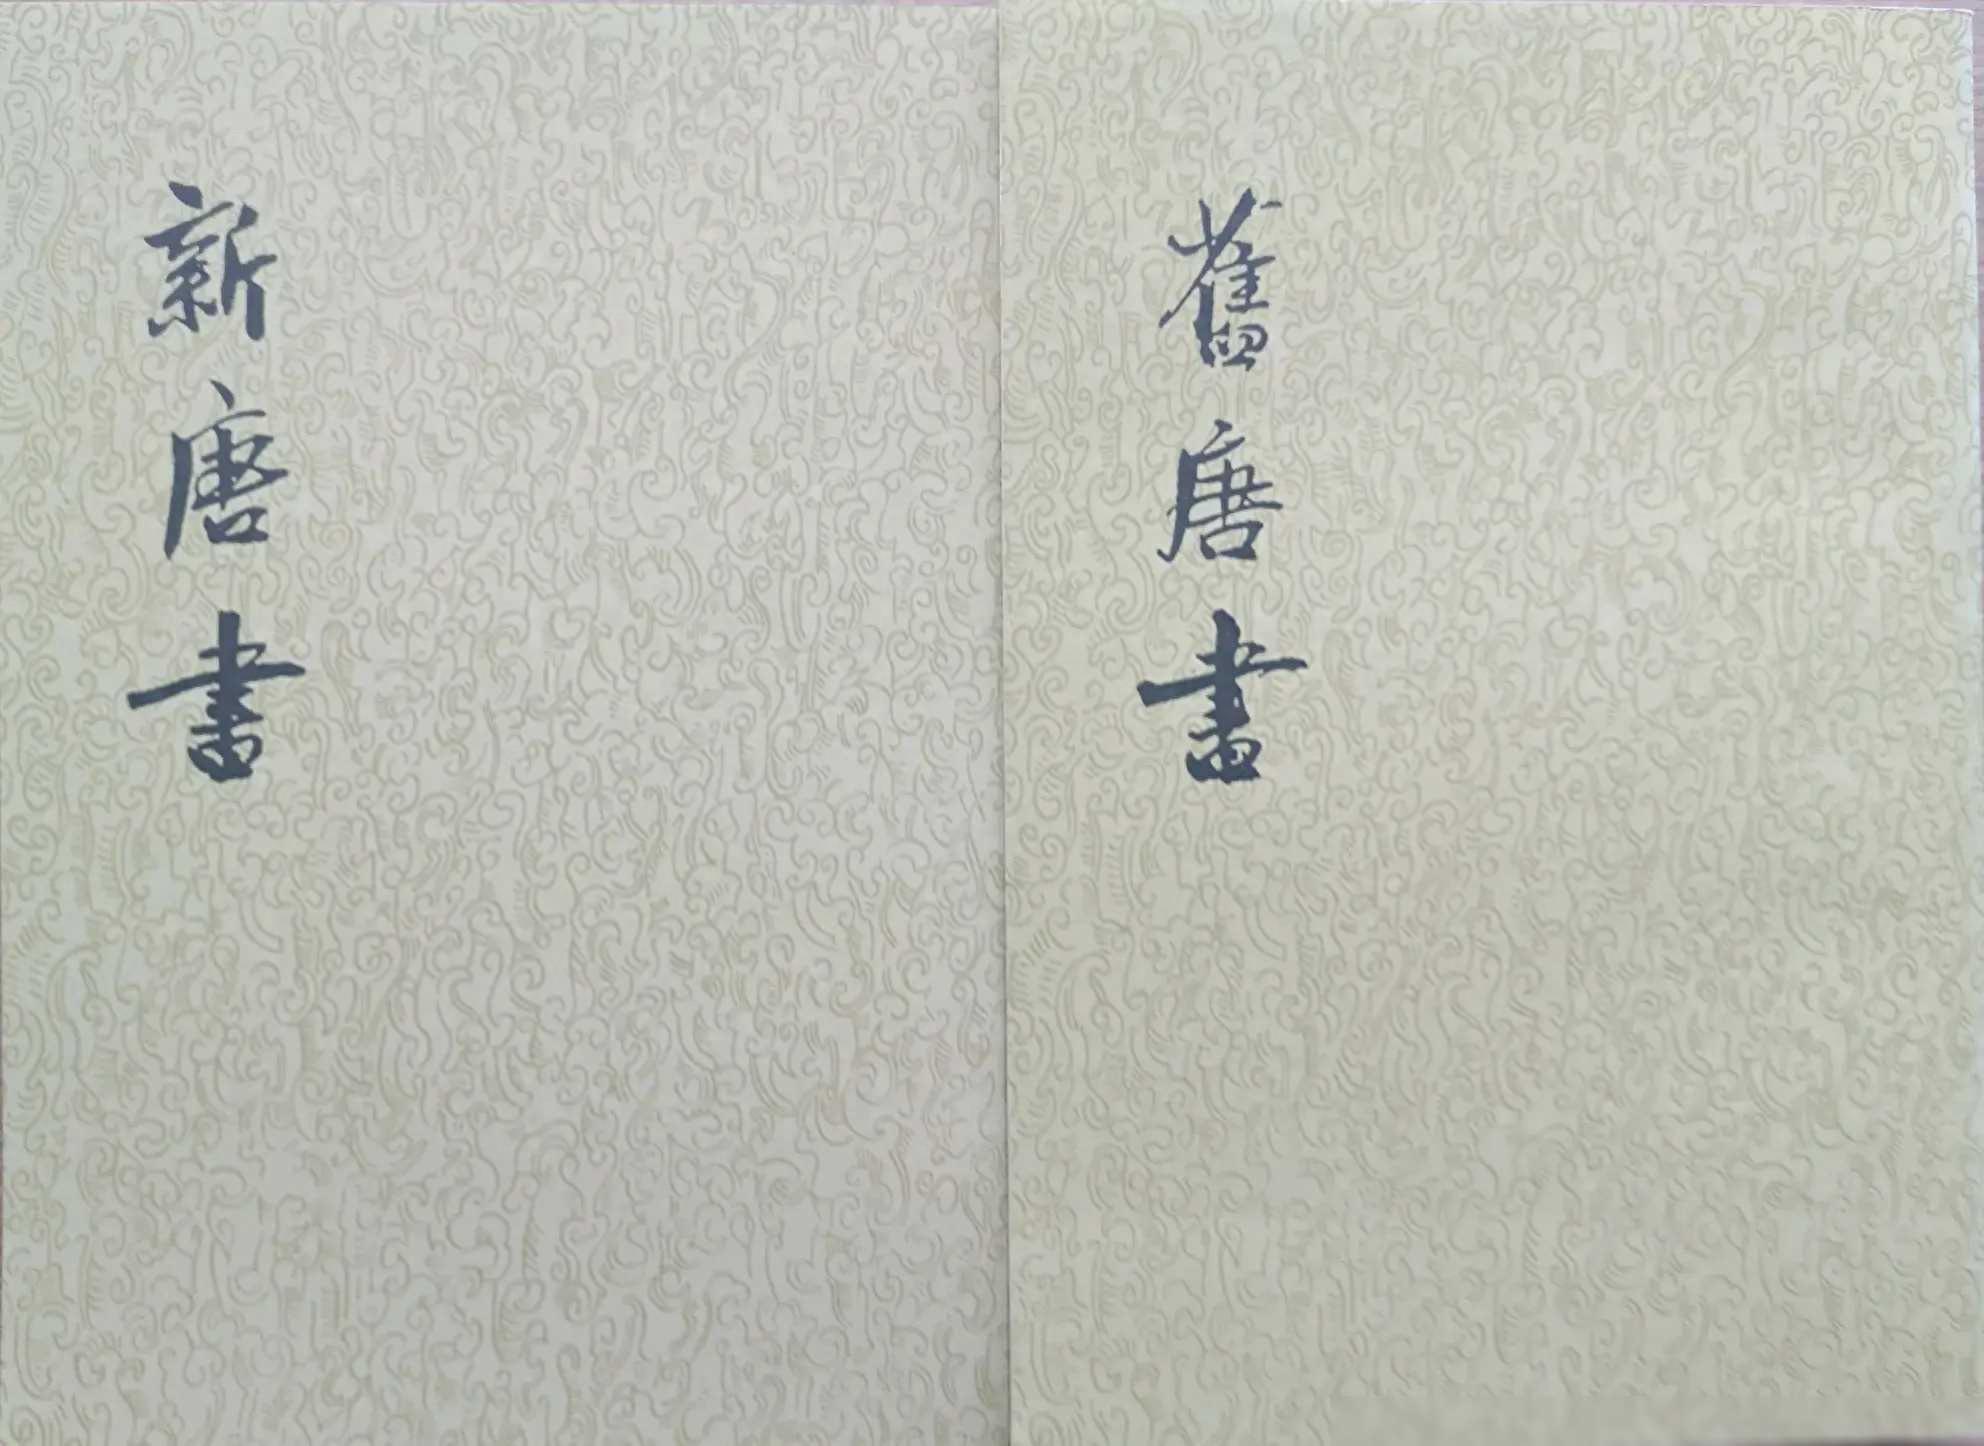 新唐書
舊唐書